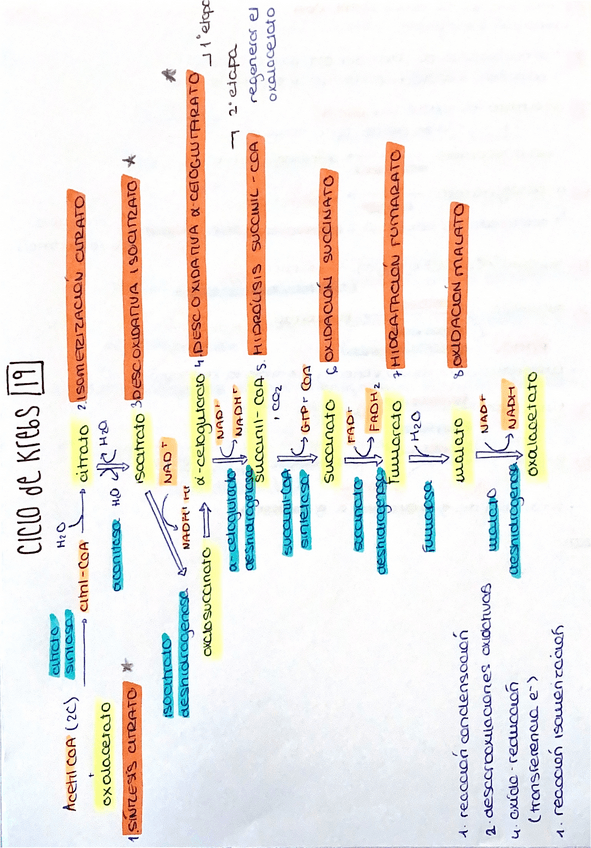 CICLO de Krebs 19
Acetil CoA (2C)
+
oxalacetato
1. SÍNTESIS CITRATO
citrato
sintasa
citril-COA
H₂O
citrato
2. ISOMERIZACIÓN CITRATO
aconitasa
H₂O
H₂O
isocitrato
3 DESCOXIDATIVA ISOCITRATO
isocitrato
deshidrogenasa
NAD⁺
NADH⁺ H⁺
oxalosuccinato
α-cetoglutarato
4. DESCOXIDATIVA α-CETOGLUTARATO
1ª etapa
2ª etapa
regenerar el
oxalacetato
α-cetoglutarato
deshidrogenasa
NAD⁺
NADH⁺
, CO₂
succinil-COA
5. HIDRÓLISIS SUCCINIL-COA
succinil-COA
sintetasa
GTP⁺ COA
succinato
6 OXIDACIÓN SUCCINATO
succinato
deshidrogenasa
FAD⁺
FADH₂
fumarato
7 HIDRATACIÓN FUMARATO
fumarasa
H₂O
malato
8 OXIDACIÓN MALATO
malato
deshidrogenasa
NAD⁺
NADH⁺
oxalacetato
1. reacción condensación
2. descarboxilaciones oxidativas
4. oxido-reducción
(transferencia e⁻)
1. reacción isomerización